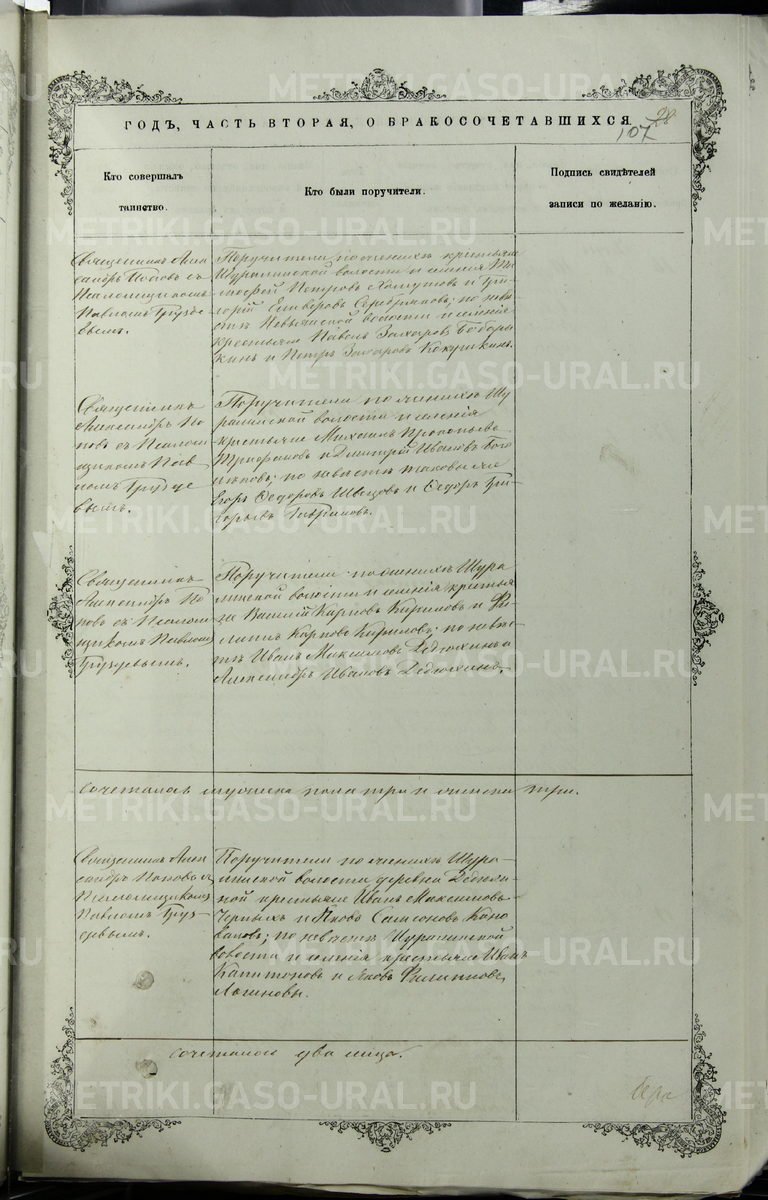 ГОДЪ, ЧАСТЬ ВТОРАЯ, О БРАКОСОЧЕТАВШИХСЯ.
98
107
Кто совершалъ
таинство.
Кто были поручители.
Подпись свидѣтелей
записи по желанію.
Священникъ Алек
сандръ Поповъ съ
Псаломщикомъ
Павломъ Груздe
вымъ.
Поручители по женихѣ крестьяне
Шуралинской волости и селенія Ти
мофей Петровъ и Гри
горій Серебряковъ; по невѣ
стѣ Невьянской волости и селенія
крестьяне Павелъ Захаровъ Бобары
кинъ и Петръ Захаровъ Кокушкинъ.
Священникъ
Александръ По
повъ съ Псалом
щикомъ Пав
ломъ Грузде
вымъ.
Поручители по женихѣ Шу
ралинской волости и селенія
крестьяне Михаилъ Прокопьевъ
Трифоновъ и Дмитрій Ивановъ
по невѣстѣ таковые же
Егоръ Федоровъ Швецовъ и Федоръ Гри
горьевъ Гавриловъ.
Священникъ
Александръ По
повъ съ Псалом
щикомъ Павломъ
Груздевымъ.
Поручители по женихѣ Шура
линской волости и селенія крестья
не Василій Карповъ Кириловъ и Фи
липъ Карповъ Кириловъ; по невѣс
тѣ Иванъ Максимовъ Дедюхинъ и
Александръ Ивановъ Дедюхинъ.
сочеталось мужеска пола три и женска три.
Священникъ Алек
сандръ Поповъ съ
Псаломщикомъ
Павломъ Груз
девымъ.
Поручители по женихѣ Шура
линской волости деревни
крестьяне Иванъ Максимовъ
Черныхъ и Яковъ Самсоновъ Коно
валовъ; по невѣстѣ Шуралинской
волости и селенія крестьяне Иванъ
Капитоновъ и Яковъ Филипповъ
Логиновы.
сочеталось два лица.
METRIKI.GASO-URAL.RU